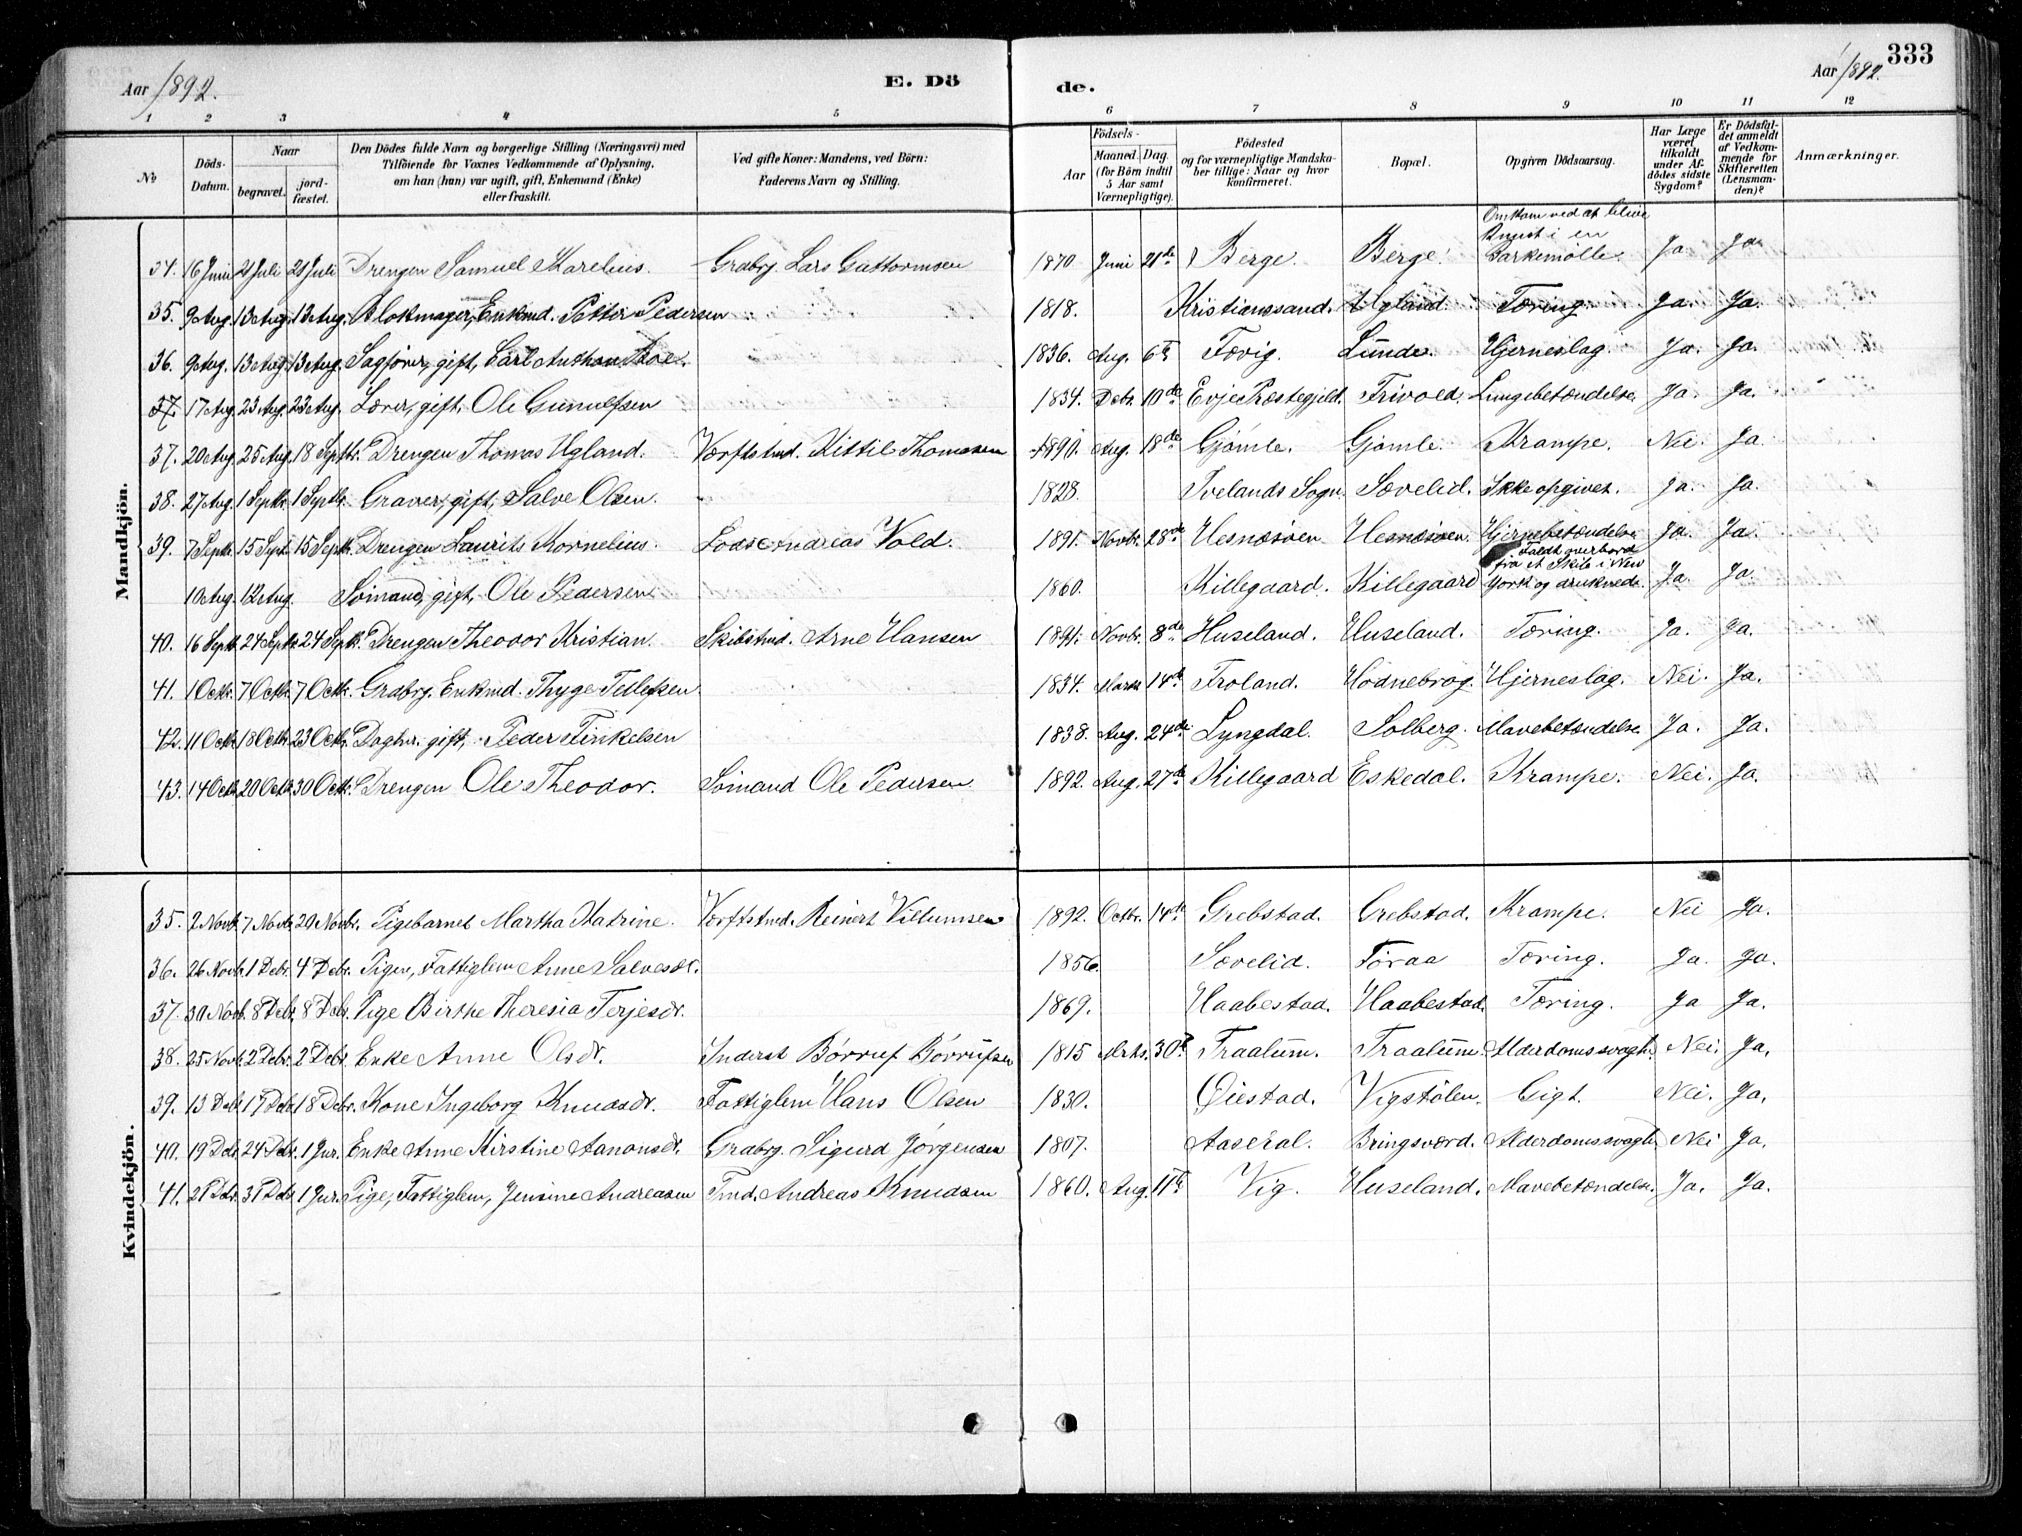 Aar 1892. E. Dö de. Aar 1892. 333
1 2 3 4 5 6 7 8 9 10 11 12
No
Döds-Datum.
Naar begravet. jordfæstet.
Den Dödes fulde Navn og borgerlige Stilling (Næringsvei) med Tilföiende for Voxnes Vedkommende af Oplysning, om han (hun) var ugift, gift, Enkemand (Enke) eller fraskilt.
Ved gifte Koner: Mandens, ved Börn: Faderens Navn og Stilling.
Födsels- Aar Maaned. Dag. (for Börn indtil 5 Aar samt Værnepligtige).
Födested og for værnepligtige Mandskaber tillige: Naar og hvor konfirmeret.
Bopæl.
Opgiven Dödsaarsag.
Har Læge været tilkaldt under Afdödes sidste Sygdom?
Er Dödsfaldet anmeldt af Vedkommende for Skifteretten (Lensmanden)?
Anmærkninger.
Mandkjön.
34. 16 Juni 21 Juli 21 Juli Drengen Samuel Karelius. Grdbrg. Lars Guttormsen 1870 Juni 21de Berge. Berge. Omkom ved at blive knust i en Barkemølle. Ja Ja
35. 9 Aug. 13 Aug. 13 Aug. Blokmager, Enkmd. Petter Pedersen 1818. Kristianssand. Ugland. Tæring. Ja. Ja.
36. 9 Aug. 13 Aug. 13 Aug. Sagfører, gift, Carl Anthon 1836. Aug. 6te Fævig. Lunde. Hjerneslag. Ja. Ja.
37. 17 Aug. 23 Aug. 23 Aug. Lærer, gift, Ole Gunulfsen 1834. Debr. 10de Evje Præstegjeld. Frivold. Lungebetændelse. Ja. Ja.
37. 20 Aug. 25 Aug. 18 Septb. Drengen Thomas Ugland. Værftstmd. Kittil Thomassen 1890. Aug. 18de Gjømle. Gjømle. Krampe. Nei. Ja.
38. 27 Aug. 1 Septb. 1 Septb. Graver, gift, Salve Olsen. 1828. Ivelands Sogn. Sævelid. Ikke opgivet. Ja. Ja.
39. 7 Septb. 15 Sept. 15 Septb. Drengen Laurits Kornelius. Lods Andreas Vold. 1891. Novbr. 28de Hesnæsøen Hesnæsøen. Hjernebetændelse Ja. Ja.
10 Aug. 12 Aug. Sömand, gift, Ole Pedersen 1860. Killegaard. Killegaard Faldt overbord fra et Skib i New York og druknede. Ja. Ja.
40. 16 Septb. 24 Septb. 24 Septb. Drengen Theodor Kristian. Skibstmd. Arne Hansen 1891. Novbr. 8de Huseland. Huseland. Tæring. Ja. Ja.
41. 1 Octb. 7 Octb. 7 Octb. Grdbrg. Enkmd. Thyge Tellefsen 1834. Marts 14de Froland. Hodnebrog. Hjerneslag. Nei. Ja.
42. 11 Octb. 18 Octb. 23 Octb. Daglnr. gift, Peder Finkelsen 1838. Aug. 24de Lyngdal. Solberg. Mavebetændelse. Ja. Ja.
43. 14 Octb. 20 Octb. 30 Octb. Drengen Ole Theodor. Sömand Ole Pedersen 1892. Aug. 27de Killegaard Eskedal. Krampe. Nei. Ja.
Kvindekjön.
35. 2 Novb. 7 Novb. 20 Novbr. Pigebarnet Martha Katrine. Værftstmd. Reinert Villumsen 1892. Octbr. 14de Grebstad. Grebstad. Krampe. Nei Ja.
36. 26 Novb. 1 Debr. 4 Debr. Pigen, Fattiglem Anne Salvesdr. 1856. Sævelid. Föraa Tæring. Ja. Ja.
37. 30 Novb. 8 Debr. 8 Debr. Pige Birthe Theresia Terjesdr. 1869. Haabestad. Haabestad. Tæring. Ja Ja.
38. 25 Novb. 2 Debr. 2 Debr. Enke Anne Olsdr. Inderst Börruf Börrufsen 1815 Mrts. 30te Traalum. Traalum. Alderdomssvagh. Nei. Ja.
39. 13 Debr. 17 Debr. 18 Debr. Kone Ingeborg Knudsdr. Fattiglem Hans Olsen 1830. Øiestad. Vigstölen. Gigt. Nei. Ja.
40. 19 Debr. 24 Debr. 1 Jnr. Enke Anne Kirstine Aanonsdr. Grdbrg. Sigurd Jørgensen 1807. Aaseral. Bringsværd. Alderdomssvagh. Nei Ja.
41. 21 Debr. 31 Debr. 1 Jnr. Pige, Fattiglem, Jensine Andreassen Tmd. Andreas Knudsen 1860. Aug. 11te Vig. Huseland. Mavebetændelse. Ja. Ja.